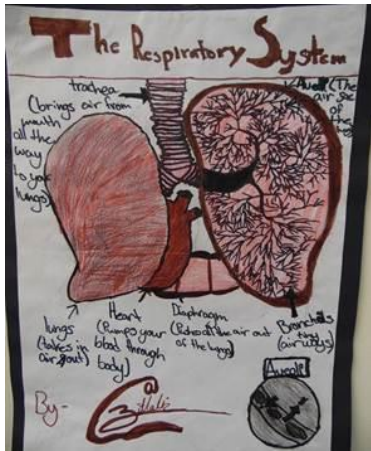 The Respiratory System
trachea
(brings air from
mouth
all the
way
to your
lungs)
Aveoli (The
air sac
of the
lungs
lungs
(takes in
air & out)
Heart
(Pumps your
blood through
body)
Diaphragm
(Pushes all the air out
of the lungs)
Bronchials
(airways)
Aveoli
By-